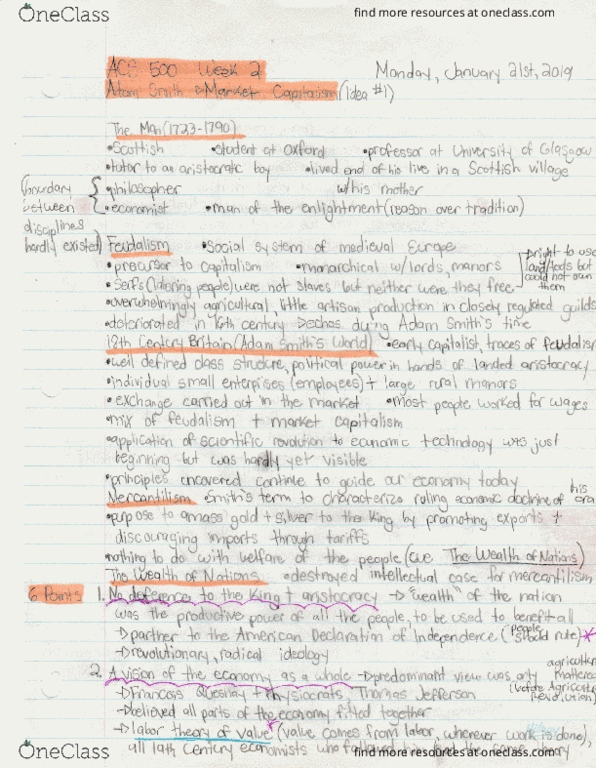 OneClass
find more resources at oneclass.com
ACS 500 Week 2
Monday, January 21st, 2019
Adam Smith & Market Capitalism (Idea #1)
The Man (1723-1790)
•Scottish •student at Oxford •professor at University of Glasgow
•tutor to an aristocratic boy •lived end of his live in a Scottish village
w/his mother
boundary between disciplines hardly existed
•philosopher
•economist •man of the enlightment (reason over tradition)
Feudalism •social system of medieval Europe
•precursor to capitalism •monarchical w/lords, manors
right to use land/tools but could not own them
•serfs (laboring people) were not slaves but neither were they free
•overwhelmingly agricultural, little artisan production in closely regulated guilds
•detoriorated in 16th century dying Adam Smith's time
18th Century Britain (Adam Smith's World) •early capitalist, traces of feudalism
•well defined class structure, political power in hands of landed aristocracy
•individual small enterprises (employees) + large rural manors
•exchange carried out in the market •most people worked for wages
•mix of feudalism + market capitalism
•application of scientific revolution to economic technology was just
beginning but was hardly yet visible
•principles uncovered continue to guide our economy today
Mercantilism •Smith's term to characterize ruling economic doctrine of his era
•purpose to amass gold + silver to the King by promoting exports +
discouraging imports through tariffs
•nothing to do with welfare of the people (cue The Wealth of Nations)
The Wealth of Nations •destroyed intellectual case for mercantilism
6 Points
1. No deference to the King + aristocracy → "wealth" of the nation
was the productive power of all the people, to be used to benefit all
→partner to the American Declaration of Independence (people should rule)*
→revolutionary, radical ideology
2. A vision of the economy as a whole →predominant view was only agriculture mattered
→Francois Quesnay + Physiocrats, Thomas Jefferson (before Agricultural Revolution)
→believed all parts of the economy fitted together
→labor theory of value* (value comes from labor, whenever work is done),
all 19th century economists who followed him had the same theory
OneClass
find more resources at oneclass.com